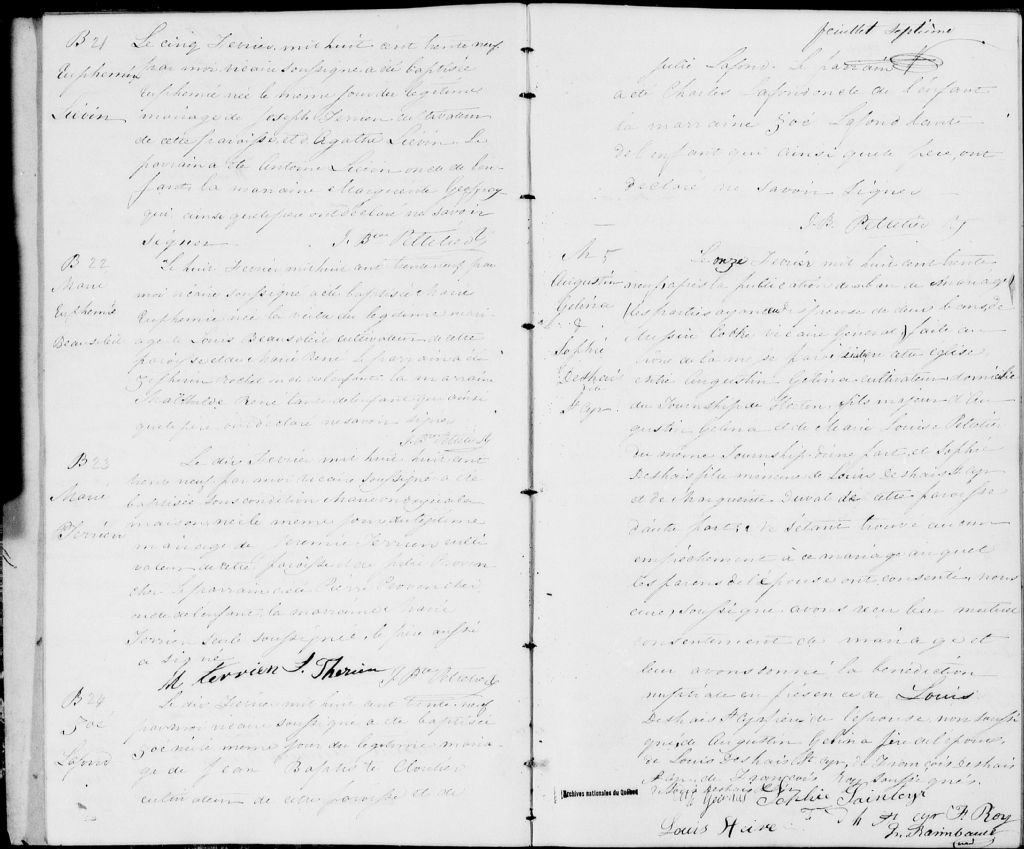 B 21
Euphemie
Liévin
Le cinq Fevrier mil huit cent trente neuf
par moi vicaire soussigné a été baptisée
Euphemie née le meme jour du legitime
mariage de Joseph Terrien cultivateur
de cette paroisse et d'Agathe Liévin. Le
parrain a été Antoine Liévin oncle de l'en-
fant la marraine Marguerite Geoffroy
qui ainsi que le pere ont déclaré ne savoir
signer.
J. Bte Pelletier
B 22
Marie
Euphemie
Beausoleil
Le huit Fevrier mil huit cent trente neuf par
moi vicaire soussigné a été baptisée Marie
Euphemie née la veille du legitime mari-
age de Louis Beausoleil cultivateur de cette
paroisse et de Marie René Le parrain a été
oncle de l'enfant la marraine
Mathilde René tante de l'enfant qui ainsi
que le pere ont declaré ne savoir signer
J. Bte Pelletier
B 23
Marie
Terrien
Le dix Fevrier mil huit huit cent
trente neuf par moi vicaire soussigné a été
baptisée sous condition Marie ondoyée à la
maison née le meme jour du legitime
mariage de Jeremie Terrien culti
vateur de cette paroisse et de Proven
cher Le parrain a été Pierre Provencher
oncle de l'enfant la marraine Marie
Terrien seule soussignée, le pere aussi
a signé
M terrien J. Therien J. Bte Pelletier
B 24
Zoé
Lafond
Le dix Fevrier mil huit cent trente neuf
par moi vicaire soussigné a été baptisée
Zoé née le meme jour du legitime maria-
ge de Jean Baptiste Cloutier
cultivateur de cette paroisse et de
feuillet septième
Julie Lafond. Le parrain
a été Charles Lafond oncle de l'enfant
la marraine Zoé Lafond tante
de l'enfant qui ainsi que le pere, ont
declaré ne savoir signer
J. B. Pelletier
M 5
Augustin
Gelina
&
Sophie
Deshais
St Cyr.
Le onze Fevrier mil huit cent trente
neuf après la publication d'un ban de mariage
(les parties ayant eu dispense de deux bans de
Messire Cooke vicaire Général) faite au
prône de la messe paroissiale en cette église
entre Augustin Gelina cultivateur domicilié
du Township de fils majeur d'Au
gustin Gelina et de Marie Louise Pelletier
du meme Township d'une part et Sophie
Deshais fille mineure de Louis Deshais St Cyr
et de Marguerite Duval de cette paroisse
d'autre part; ne s'étant trouvé aucun
empêchement à ce mariage auquel
les parens de l'épouse ont consenti, nous
curé, soussigné avons reçu leur mutuel
consentement de mariage et
leur avons donné la bénédiction
nuptiale en presence de Louis
Deshais St Cyr père de l'epouse, non soussi
gné, de Augustin Gelina père de l'époux,
de Louis Deshais St Cyr, de François Deshais
St Cyr, de François Roy soussignés.
Sophie Saintcyr
Louis Haire
St cyr F. Roy
Archives nationales du Québec